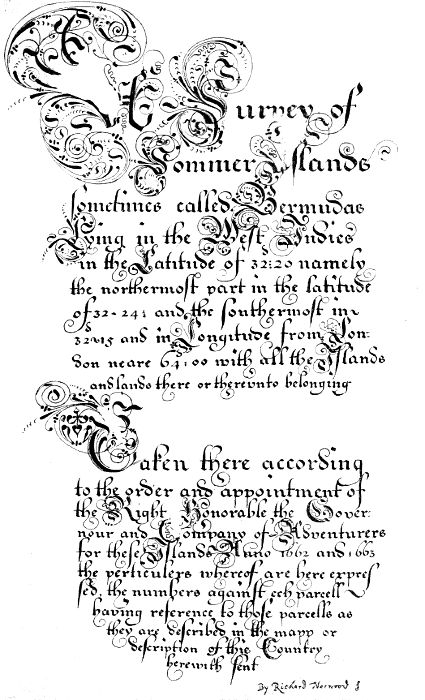 A Survey of
Sommer Islands
sometimes called Bermudas
Lying in the West Indies
in the Latitude of 32:20 namely
the northermost part in the latitude
of 32-24: and the southermost in
32:15 and in Longitude from Lon-
don neare 64:00 with all the Islands
and lands there or therevnto belonging
Taken there according
to the order and appointment of
the Right Honorable the Gover
nour and Company of Adventurers
for these Islands Anno 1662 and 1663
the perticulers whereof are here expres
sed, the numbers against ech parcell
having reference to those parcells as
they are described in the mapp or
description of this Country
herewith sent
By Richard Norwood